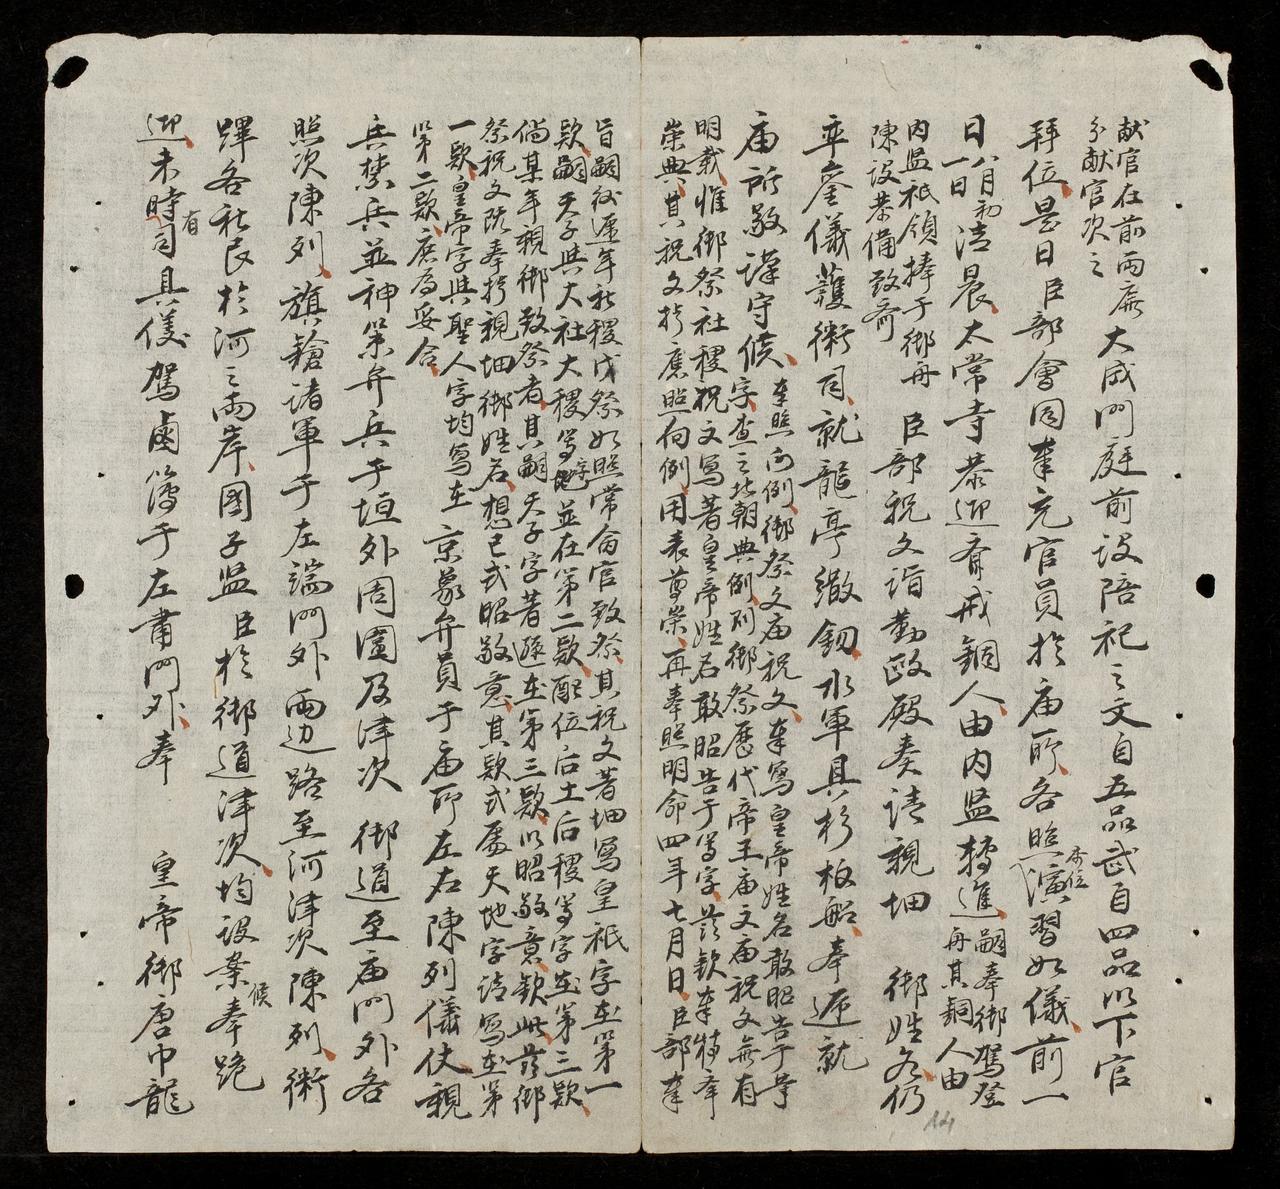 献官在前兩廡
分献官次之
大成門庭前設陪祀之文自五品武自四品以下官
拜位是日臣部會同奉充官員於庙所各照本位演習如儀前一
日八月初一日
清晨太常寺恭迎齋戒銅人由内监轉進
嗣奉御駕登
舟其銅人由
内监祗領捧于御舟
陳設恭備致齋
臣部祝文詣勤政殿奏請親填御姓名仍
率鑾儀護衛司就龍亭繖釼水軍具杉板船奉遞就
庙所敬謹守候
奉照向例御祭文庙祝文奉寫皇帝姓名敢昭告于等
字查之北朝典例列御祭歷代帝王庙文庙祝文無有
明載惟御祭社稷祝文寫著皇帝姓名敢昭告于等字茲欽奉特奉
崇典其祝文擬應照向例用表尊崇再奉照明命四年七月日臣部奉
旨嗣後遞年社稷戊祭如照常命官致祭其祝文著填寫皇祇字在第一
欵嗣天子與大社大稷等字並在第二欵配位后土后稷等字在第三欵
倘某年親御致祭者其嗣天子字著遜在第三欵以昭敬意欽此茲御
祭祝文既奉擬親填御姓名想已式昭敬意其欵式處天地字請寫在第
一欵皇帝字與聖人字均寫在
第二欵庶為妥合
京象弁員于庙所左右陳列儀仗親
兵禁兵並神策弁兵于垣外周圍及津次御道至庙門外各
照次陳列旗鎗諸軍于左端門外兩边路至河津次陳列衛
蹕各社民於河之兩岸國子监臣於御道津次均設案奉候跪
迎未時有司具儀駕鹵簿于左肅門外奉皇帝御唐巾龍